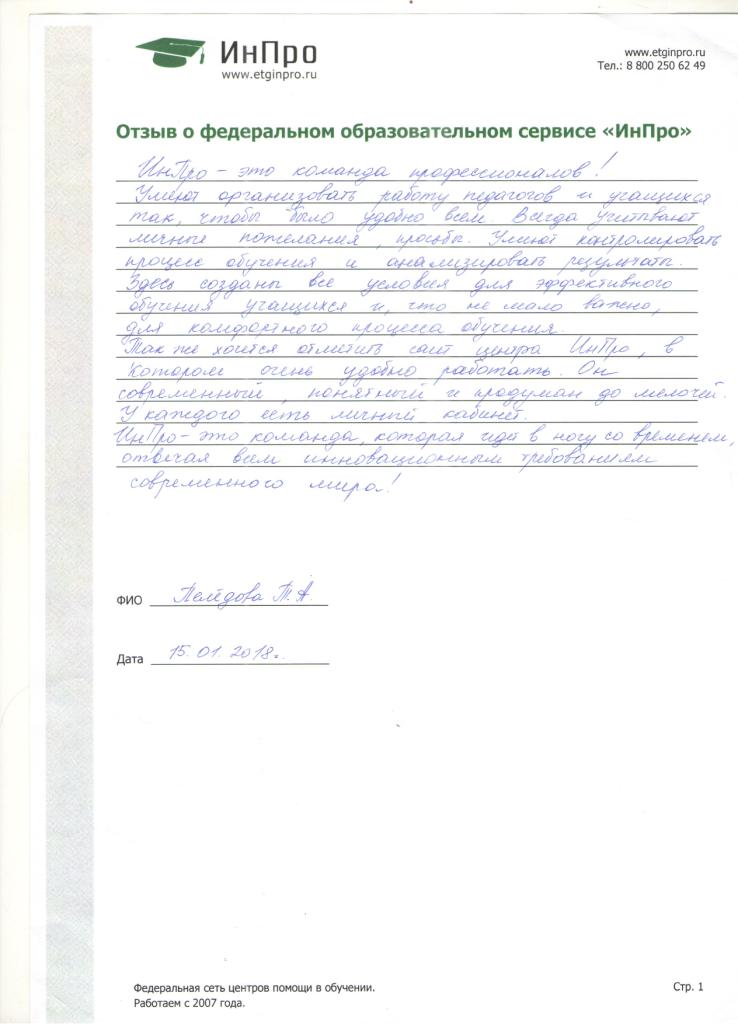 ИнПро
www.etginpro.ru
www.etginpro.ru
Тел.: 8 800 250 62 49
Отзыв о федеральном образовательном сервисе «ИнПро»
ИнПро - это команда профессионалов!
Умеют организовать работу педагогов и учащихся
так, чтобы было удобно всем. Всегда учитывают
личные пожелания, просьбы. Умеют контролировать
процесс обучения и анализировать результаты.
Здесь созданы все условия для эффективного
обучения учащихся и, что не мало важно,
для комфортного процесса обучения.
Так же хочется отметить сайт центра ИнПро, в
котором очень удобно работать. Он
современный, понятный и продуман до мелочей.
У каждого есть личный кабинет.
ИнПро - это команда, которая идёт в ногу со временем,
отвечая всем инновационным требованиям
современного мира!
ФИО Т.А.
Дата 15.01.2018г.
Федеральная сеть центров помощи в обучении.
Работаем с 2007 года.
Стр. 1